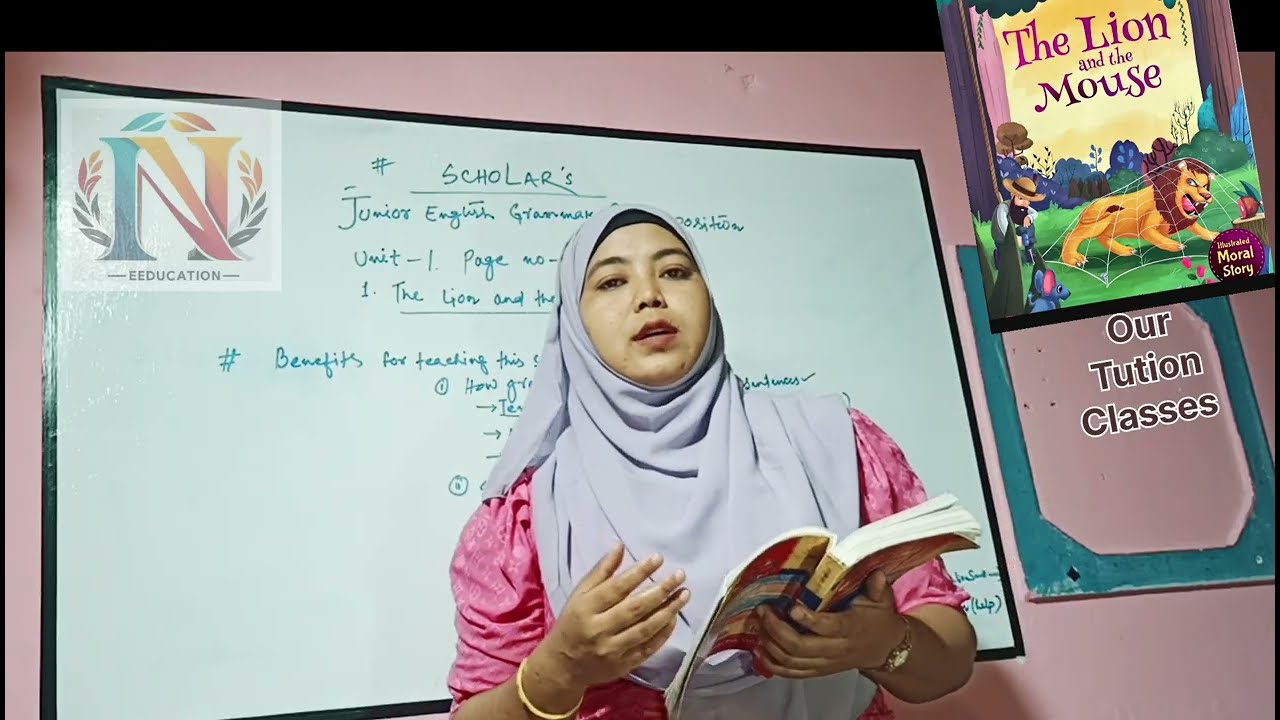 N
EEDUCATION
# SCHOLAR's
Junior English Grammar
Unit-1. Page no-
1. The Lion and the
# Benefits for teaching this
(i) How
sentences ✓
→
→
→
(ii)
(help)
The Lion
and the
Mouse
Illustrated
Moral
Story
Our
Tution
Classes